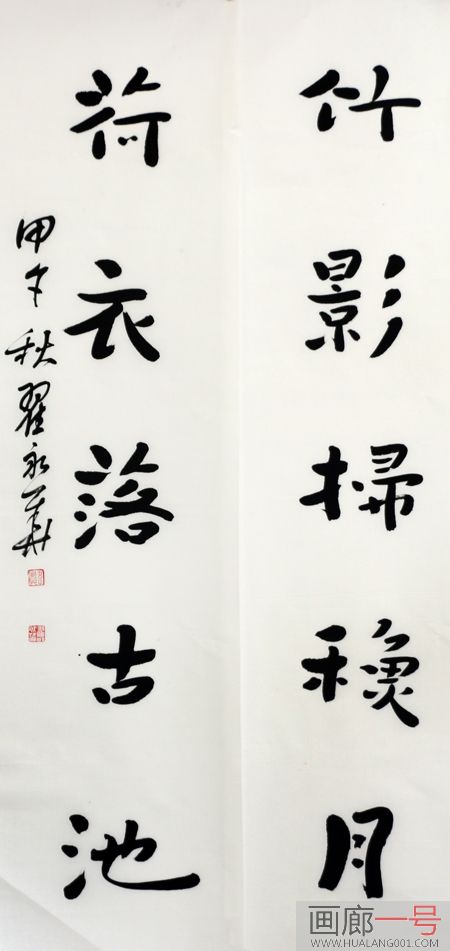 竹影掃穐月
荷衣落古池
甲午秋翟永華
画廊一号
WWW.HUALANG001.COM